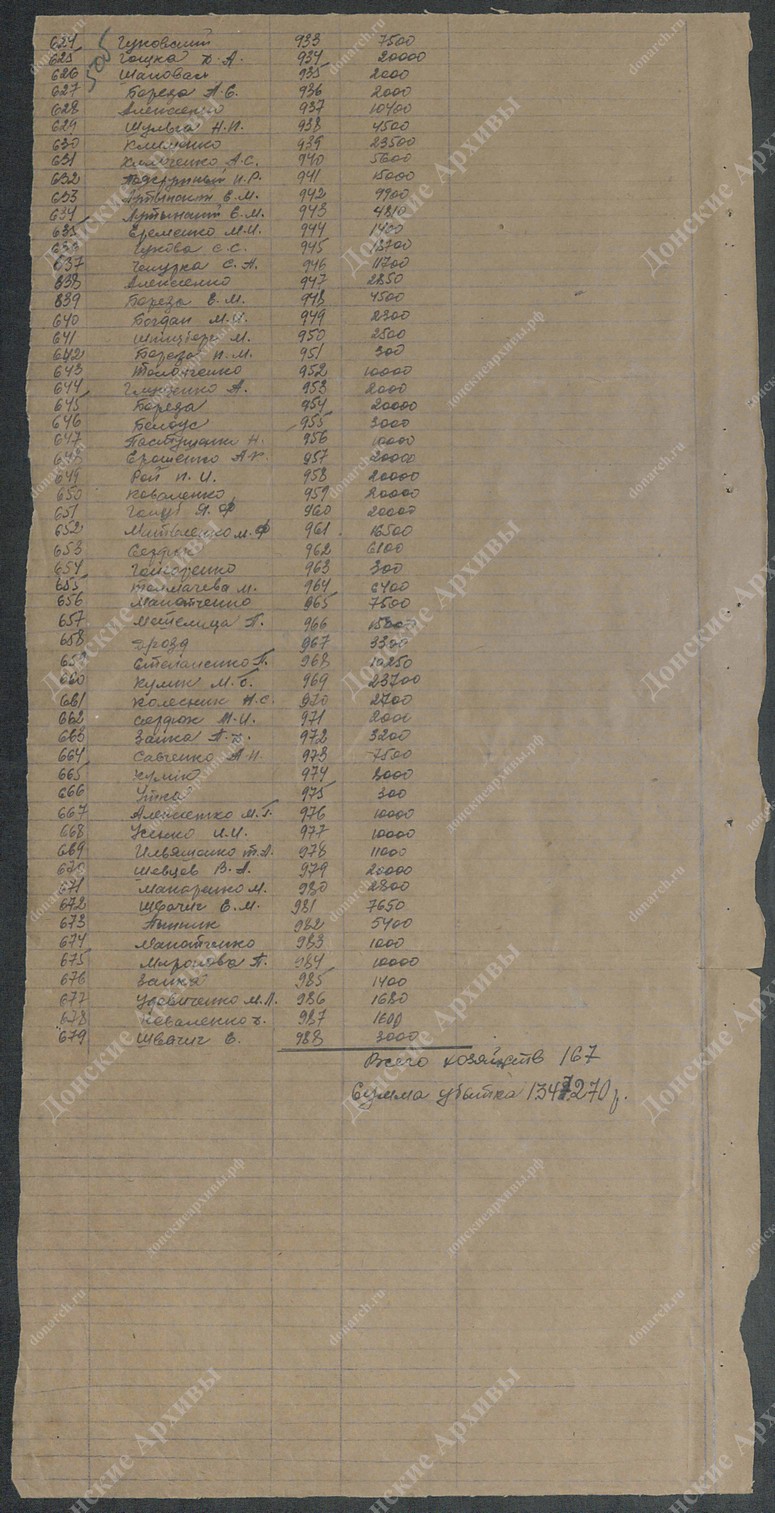 624 Гуковский 933 7500
625 Гошка Х. А. 934 20000
626 Шаповал 935 2000
627 Береза А. Е. 936 2000
628 Алексеенко 937 10400
629 Шульга Н. П. 938 4500
630 Клименко 939 23500
631 Климченко А. С. 940 5600
632 П. Р. 941 15000
633 Артынский Е. М. 942 9900
634 Артынский Е. М. 943
635 Еременко М. И. 944 1400
636 Гукова Е. С. 945
637 С. А. 946 11700
638 Алексеенко 947 2850
639 Береза Е. М. 948 4500
640 Богдан М. И. 949 2300
641 М. 950 2500
642 Береза П. М. 951 300
643 952 10000
644 А. 953 2000
645 Береза 954 20000
646 Белоус 955 3000
647 Н. 956 10000
648 Ерошенко 957 20000
649 Рой П. И. 958 20000
650 Коваленко 959 20000
651 Голуб Я. Ф 960 20000
652 М. Ф 961 16500
653 Сердюк 962 6100
654 963 300
655 Толмачева М. 964 6400
656 Манойченко 965 7500
657 Метелица П. 966
658 Дрозд 967 3300
659 Степаненко П. 968 10250
660 Кулик М. Б. 969 23700
661 Колесник Н. С. 970 2700
662 Сердюк М. И. 971 2000
663 Заика 972 3200
664 Савченко А. Н. 973 7500
665 974 3000
666 975 300
667 Алексеенко М. Г. 976 10000
668 Усенко И. И. 977 10000
669 Ильяшенко Т. А. 978 11000
670 Шевцов В. А. 979 20000
671 Макаренко М. 980 2800
672 Швачич Е. М. 981 7650
673 982 5400
674 Манойченко 983 1000
675 Миронова П. 984 10000
676 Заика 985 1400
677 Удовиченко М. Л. 986 1680
678 Коваленко Х. 987 1600
679 Швачич Е. 988 3000
Всего хозяйств 167
Сумма убытка 1347270 р.
Донские Архивы
donarch.ru
донскиеархивы.рф